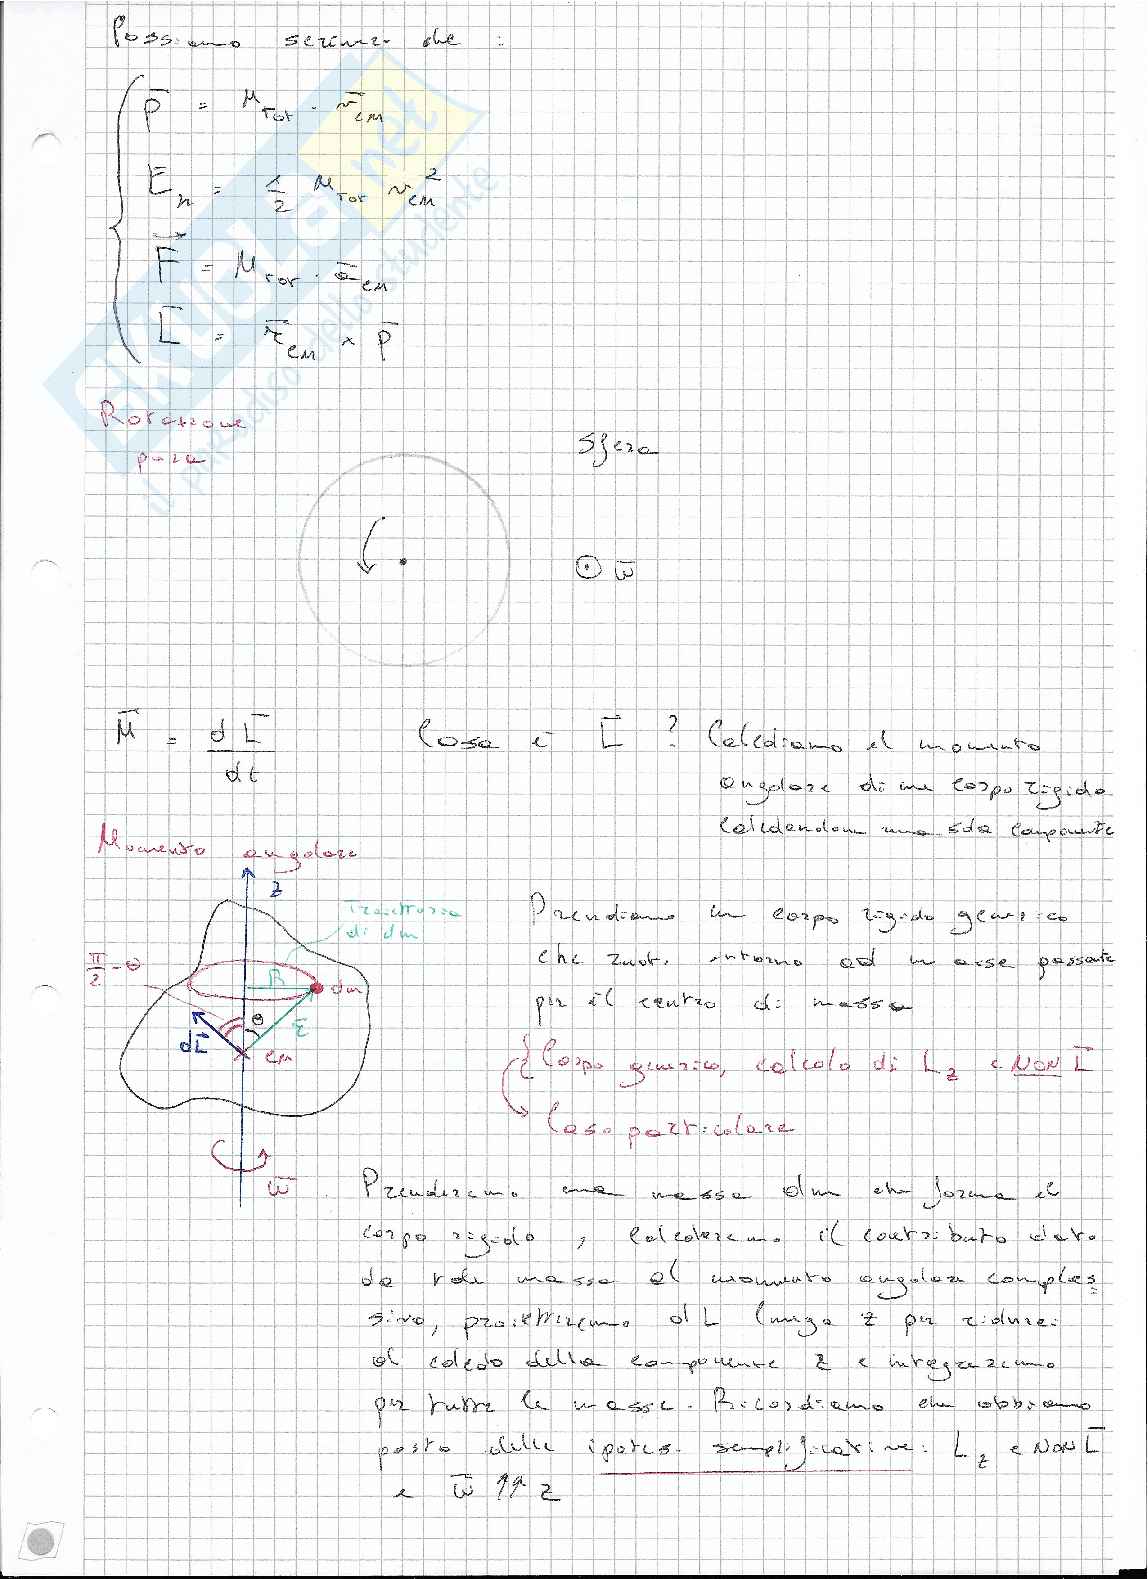 Possiamo scrivere che :
p̄ = M_TOT · v̄_CM
E_K = 1/2 M_TOT v_CM²
F⃗ = M_TOT · ā_CM
L̄ = r̄_CM × p̄
SKUOLA.net
il paradiso dello studente
Rotazione
pura
Sfera
ω̄
M̄ = dL̄/dt
Cosa è L̄ ? Calcoliamo il momento
angolare di un corpo rigido
calcolandone una sola componente
Momento angolare
z
Traiettoria
di dm
π/2 - θ
R
dm
θ
r̄
dL̄
CM
ω̄
Prendiamo un corpo rigido generico
che ruoti intorno ad un asse passante
per il centro di massa
{ Corpo generico, calcolo di L_z e NON L̄
Caso particolare
Prenderemo una massa dm che forma il
corpo rigido, calcoleremo il contributo dato
da tale massa al momento angolare comples
sivo, proietteremo dL lungo z per ridurci
al calcolo della componente z e integreremo
per tutte le masse. Ricordiamo che abbiamo
posto delle ipotesi semplificative: L_z e NON L̄
e ω̄ ↑↑ z